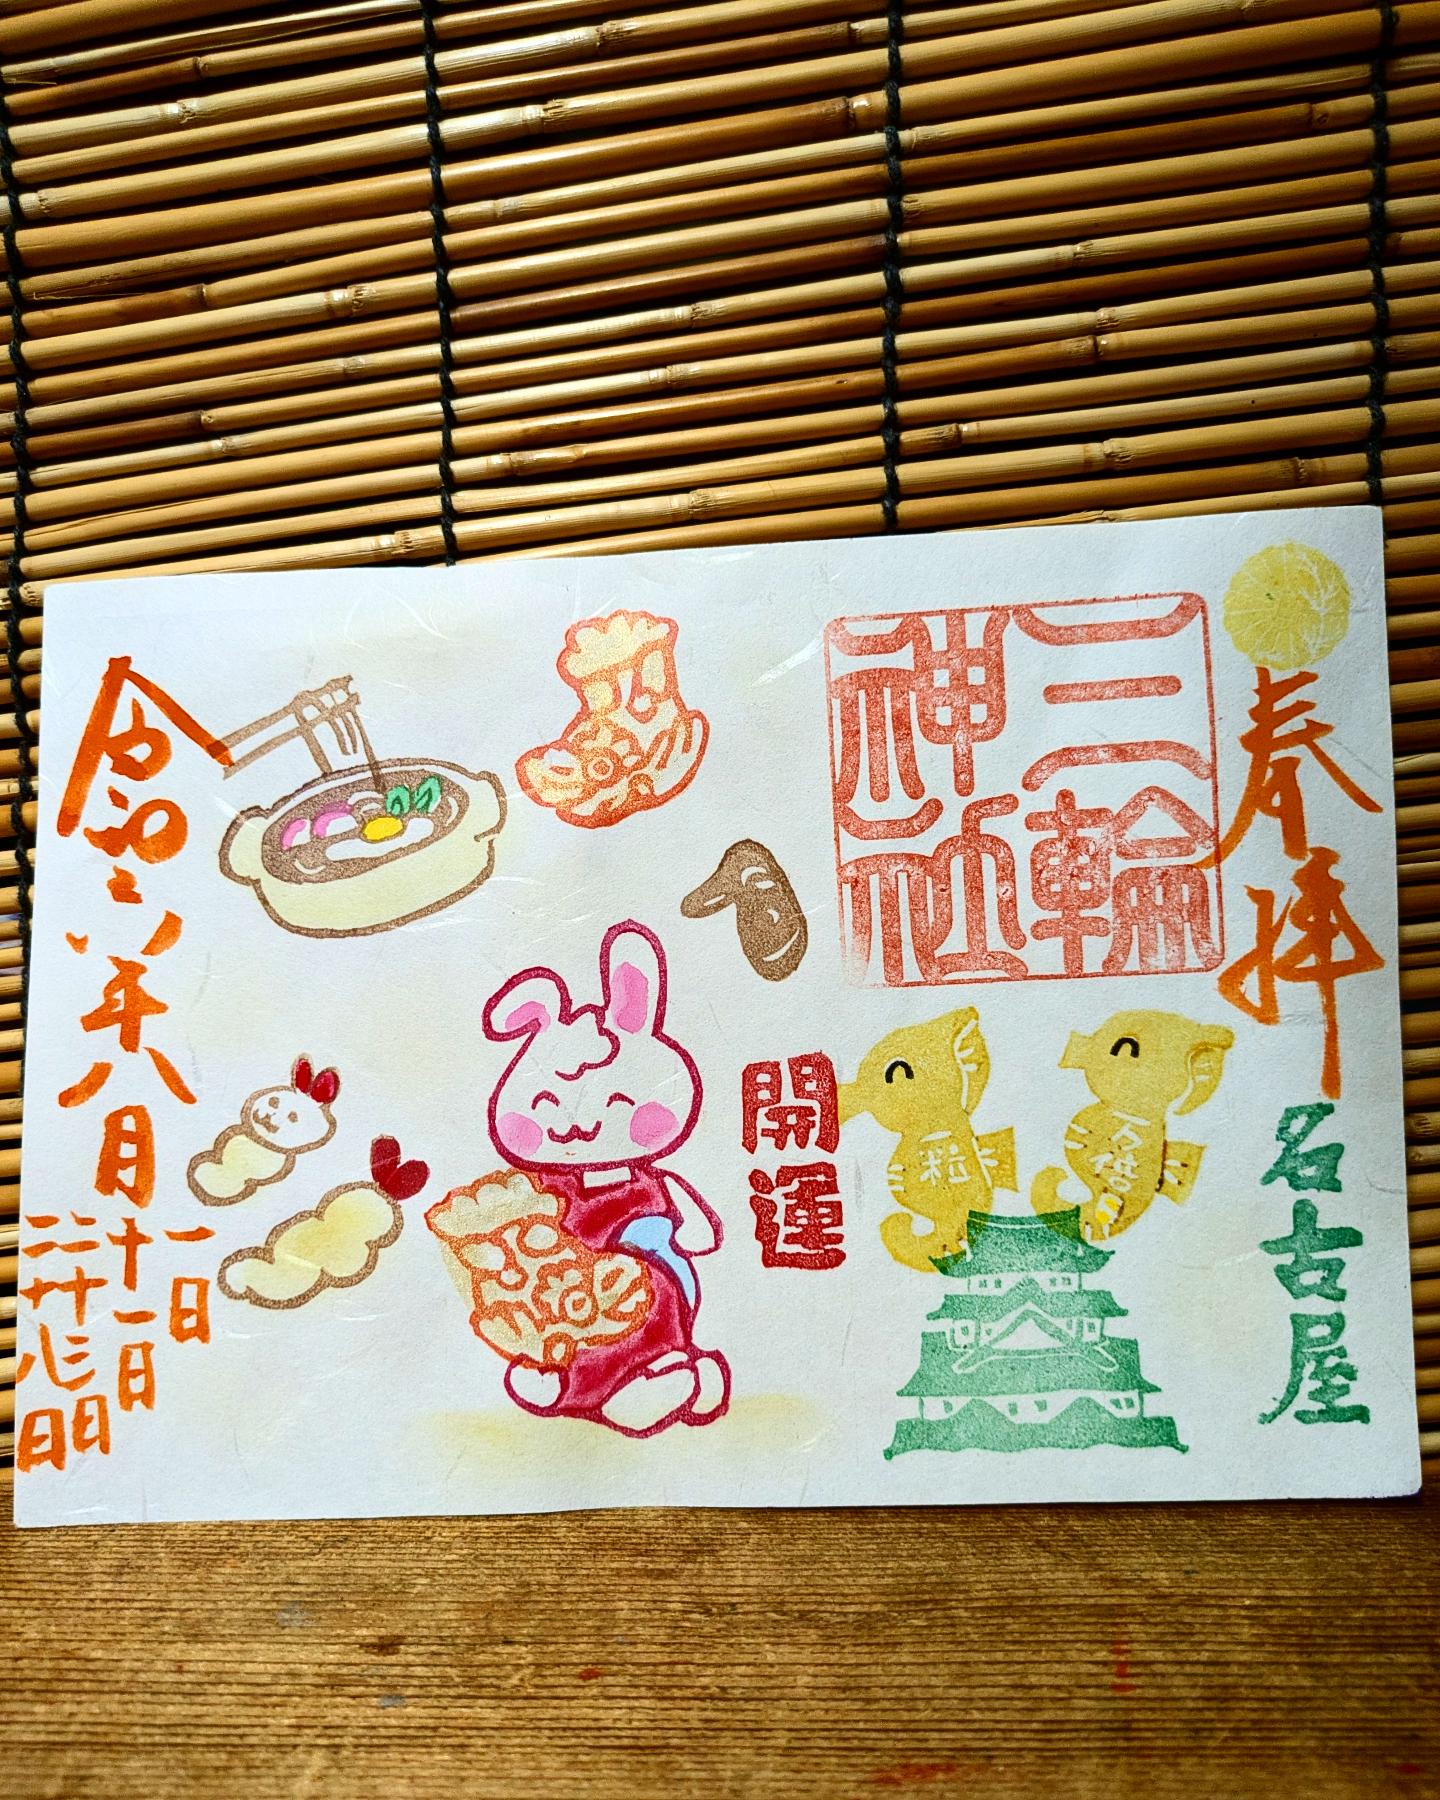 奉拝
名古屋
三輪
神社
万倍日
一粒
開運
令和六年八月
一日
十一日
二十三日
二十八日